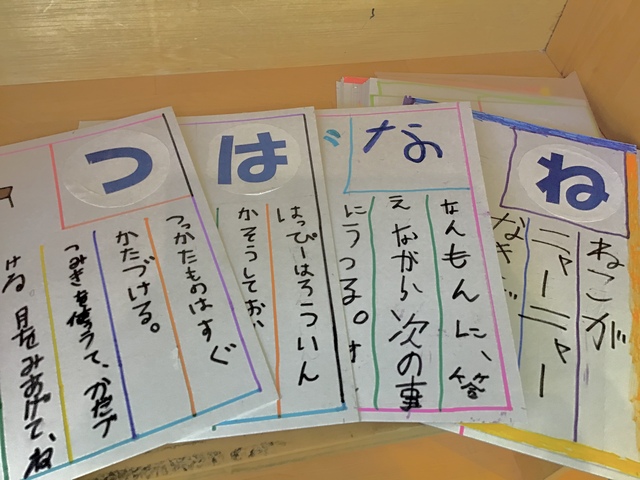 つ
つかったものはすぐ
かたづける。
つみきを使って、かたづ
ける 月をみあげて、ね
は
はっぴーはろうぃん
かそうしておい
な
なんもんに、答
えながら、次の事
にうつる。
ね
ねこが
ニャーニャー